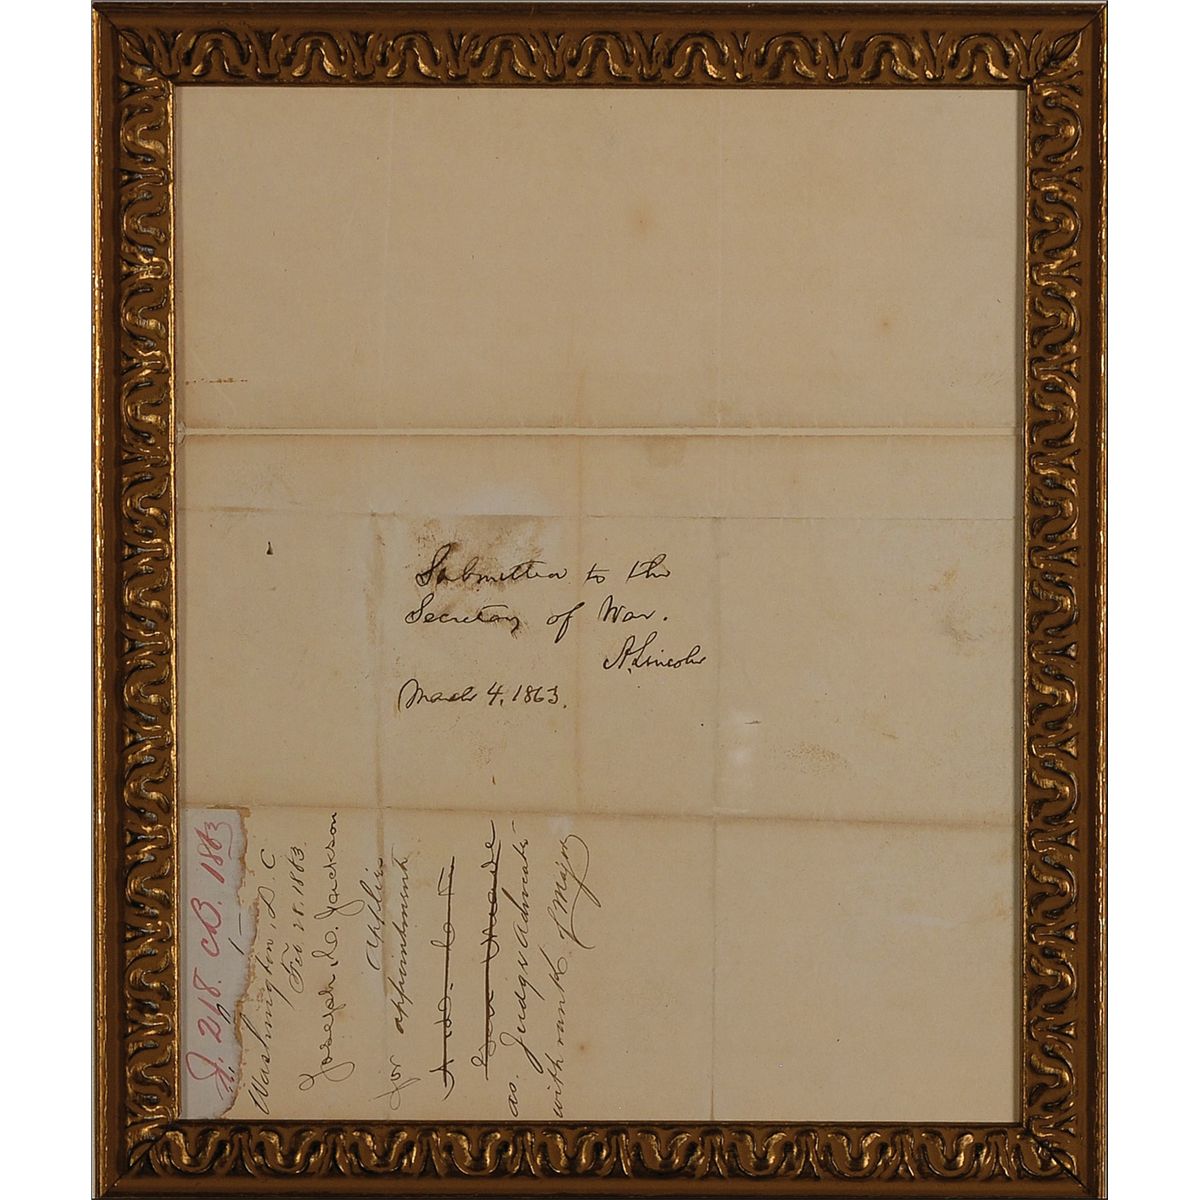 Submitted to the
Secretary of War.
A. Lincoln
March 4, 1863.
J. 218. CB. 1863
Washington, D. C
Feb. 28. 1863
Joseph D. Jackson
applies
for appointment
as Judge Advocate
with rank of Major